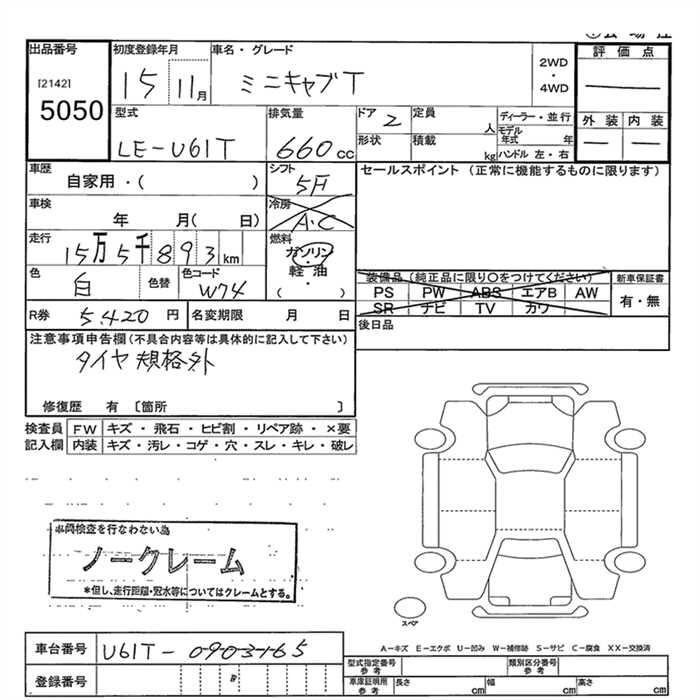 出品番号
[2142]
5050
初度登録年月
15 11月
車名・グレード
ミニキャブT
2WD
・
4WD
評価点
―
外装 内装
― ―
型式
LE-U61T
排気量
660cc
ドア
2
定員
人
形状
積載
kg
ディーラー・並行
モデル年式 年
ハンドル 左・右
車歴
自家用・( )
シフト
5F
セールスポイント (正常に機能するものに限ります)
車検
年 月( 日)
冷房
A・C
走行
15万5千893km
燃料
ガソリン
・
軽油
・
( )
色
白
色替
色コード
W74
装備品(純正品に限り○をつけてください)
PS PW ABS エアB AW
SR ナビ TV カワ
新車保証書
有・無
R券 5,420円
名変期限 月 日
後日品
注意事項申告欄(不具合内容等は具体的に記入して下さい)
タイヤ規格外
修復歴 有 〔箇所 〕
検査員記入欄
FW キズ・飛石・ヒビ割・リペア跡・×要
内装 キズ・汚レ・コゲ・穴・スレ・キレ・破レ
車両検査を行なわない為
ノークレーム
*但し、走行距離・冠水等についてはクレームとする。
スペア
A－キズ E－エクボ U－凹み W－補修跡 S－サビ C－腐食 XX－交換済
車台番号
U61T-0903165
登録番号
型式指定番号
参考
類別区分番号
参考
車庫証明用
参考
長さ cm
幅 cm
高さ cm